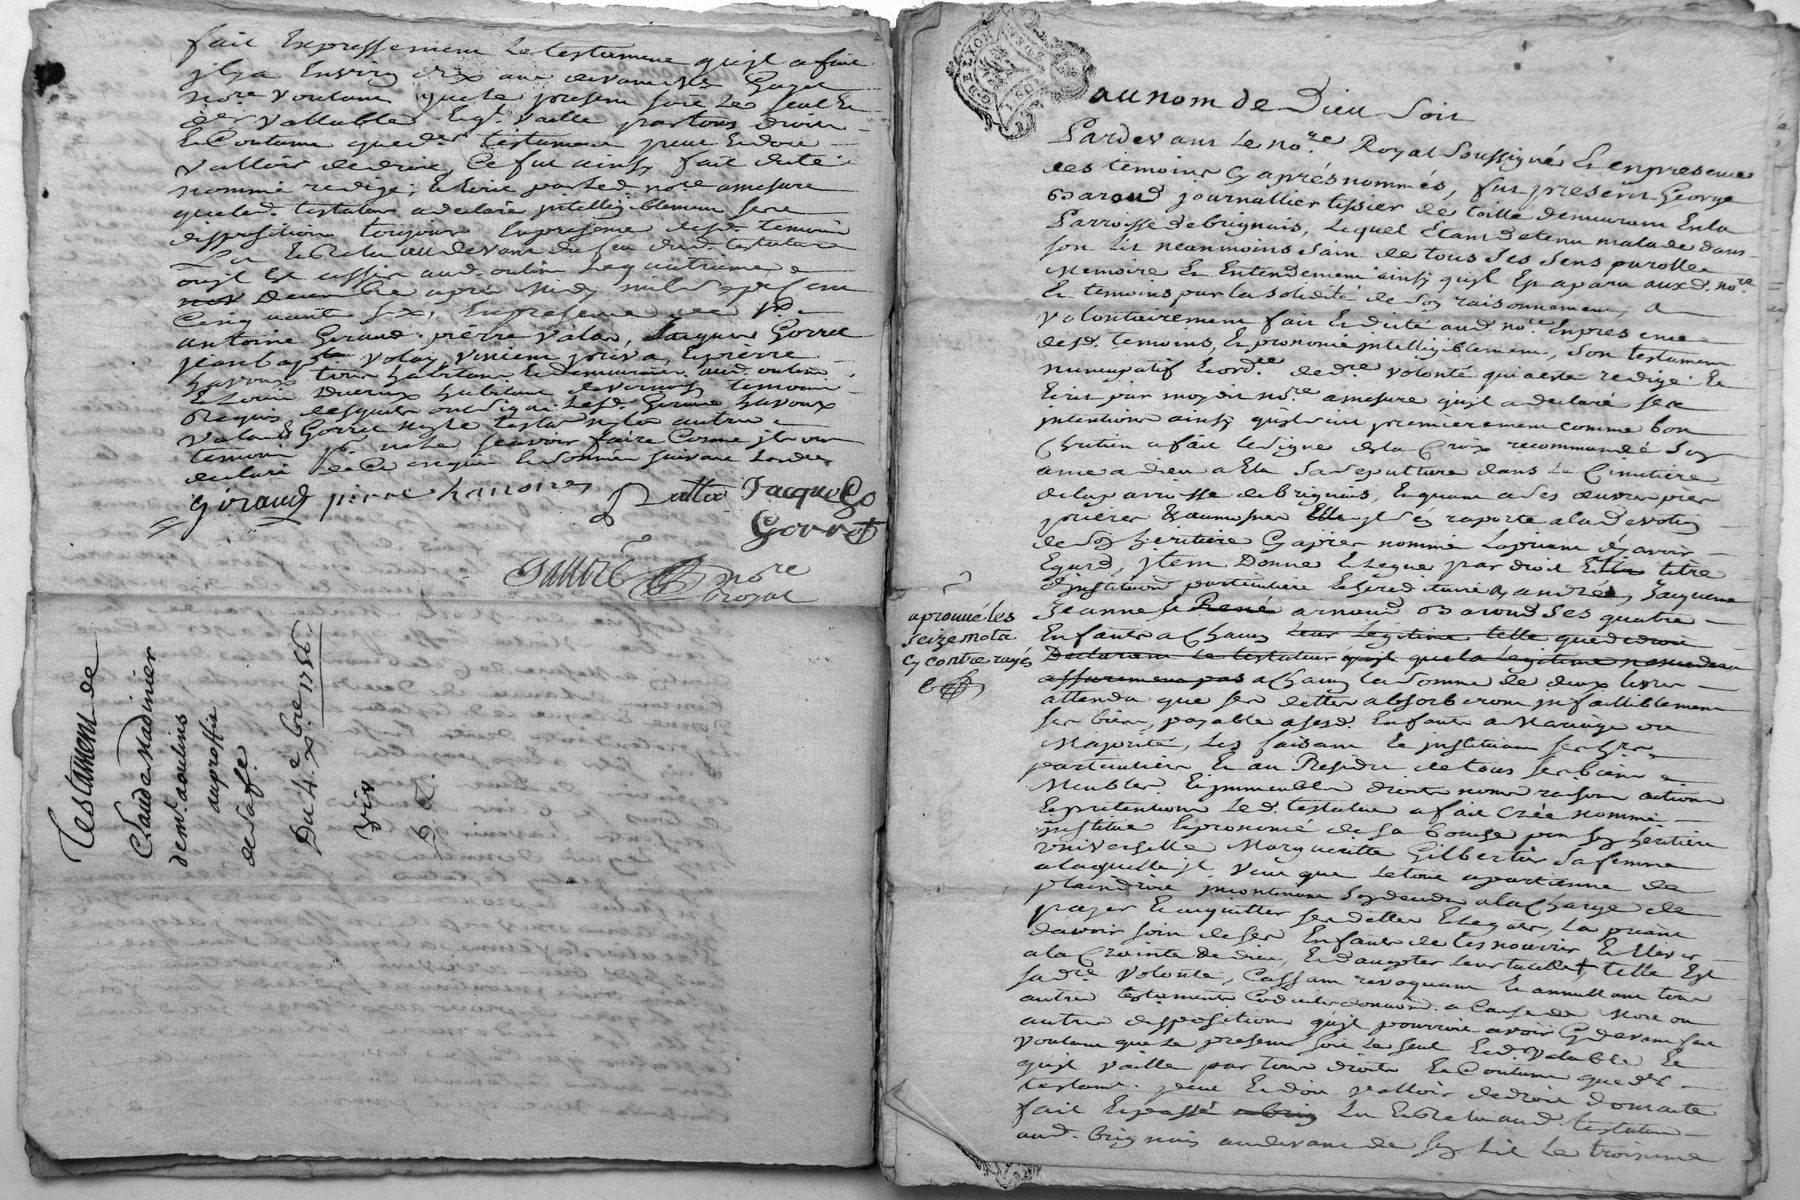 fait Expressement le testament qu'jl a fait
jl y a Environ dix ans devant Me
nore voulant que le present soit le seul Et
der vallable Et qt vaille par tous droits
Et Coutume que der testament peut Et doit
valloir de droit, Ce fut ainsy fait dicté
nommé redigé, Et Ecrit par led. nore amesure
que led. testateur a declaré jntelligiblement ses
disposition toujours En presence desd. temoins
Lu Et Relu au devant du feu dud. testateur
quatrieme
decembre apres midy mil sept cent
Cinquante six, En presence de sr
antoine Giraud, pierre Valas, Jacques Gorret
jean bapte volay, vincent priva, Et pierre
havoux tous habitans Et demeurants aud. oulins
Et Louis Ducreux habitant de vernay temoins
Requis desquels ont signé lesd. Giraud havoux
valas Et Gorret non le testateur ny les autres
temoins pr ne le scavoir faire Comme jls ont
declaré de Ce enquis Et sommés suivant Lordce
Giraud pierre havoux Vallas Jacque Go
Gorret
nore
royal
Testament de
Claude Madinier
demt. a oulins
au proffit
de sa fe.
Du 4.e Xbre. 1756.
au nom de Dieu Soit
Pardevant le nore. Royal Soussigné Et en presence
des temoins Cy aprés nommés, fut present George
Baroud journallier tissier de toille demeurant En la
Parroisse de brignais, Lequel Etant detenu malade dans
son lit neanmoins sain de tous ses sens parolle
Memoire Et Entendement ainsy qu'jl Est aparu auxd. nore
Et temoins par la solidité de son raisonnement, a
volontairement fait Et dicté aud. nore En presence
desd. temoins, Et prononcé jntelligiblement, Son testament
nuncupatif Et ordce de dre volonté qui a esté redigé Et
Ecrit par moy dit nore amesure qu'jl a declaré ses
jntentions ainsy qu'jl suit premierement comme bon
Chretien a fait le Signe de la Croix recommandé Son
ame a dieu a Elu Sa Sepulture dans le Cimetiere
de lad. parroisse de brignais, Et quant a ses oeuvres pies
prieres Et aumosnes Elle jl s'en raporte a la devotion
de son heritiere Cy apres nommée La priant d'y avoir
Egard, jtem Donne Et Legue par droit Et titre
d'jnstitution particuliere Et hereditaire a andré, Jacqueme
Jeanne Et René arnaud Baroud Ses quatre
Enfants a Chacun leur Legitime telle que de droit
Declarant le testateur qu'jl que la Legitime
assurement pas a Chacun la somme de deux livres
attendu que ses dettes absorberont jnfailliblement
ses biens, payable a sesd. Enfants a Mariage ou
Majorité, les faisant Et jnstituant ses hers
particuliers Et au Residu de tous ses biens
Meubles Et jmmeubles droits noms raisons actions
Et pretentions Led. testateur a fait Créé nommé
jnstitué Et prononcé de sa bouche pour Son heritiere
Vniverselle Marguerite Gilbertier Sa femme
a laquelle jl veut que le tout apartienne de
plain droit jncontinent Son deces a la Charge de
payer Et acquitter ses dettes Et legats, La priant
d'avoir soin de ses Enfants de les nourrir Et Elever
a la Crainte de dieu, Et d'accepter leur tutelle, telle Est
sa dre volonté, Cassant revoquant Et annullant tous
autres testaments Codicilles donations a Cause de Mort ou
autres dispositions qu'jl pourroit avoir Cy devant fait
voulant que Le present soit le seul Et dr Valable Et
qu'jl vaille par tous droits Et Coutume que der
testamt. peut Et doit valloir de droit
fait Et passé Lu Et Relu aud. testateur
aud. brignais au devant de son Lit Le troisieme
aprouvé les
seize mots
Cy contre rayés